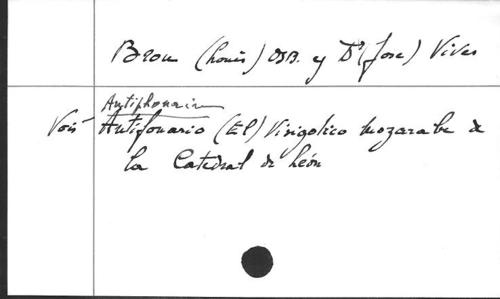 Brou (Louis) OSB. y Dr (Jose) Vives
Antiphonaire
Voir Antifonario (El) Visigotico mozarabe de
la Catedral de León